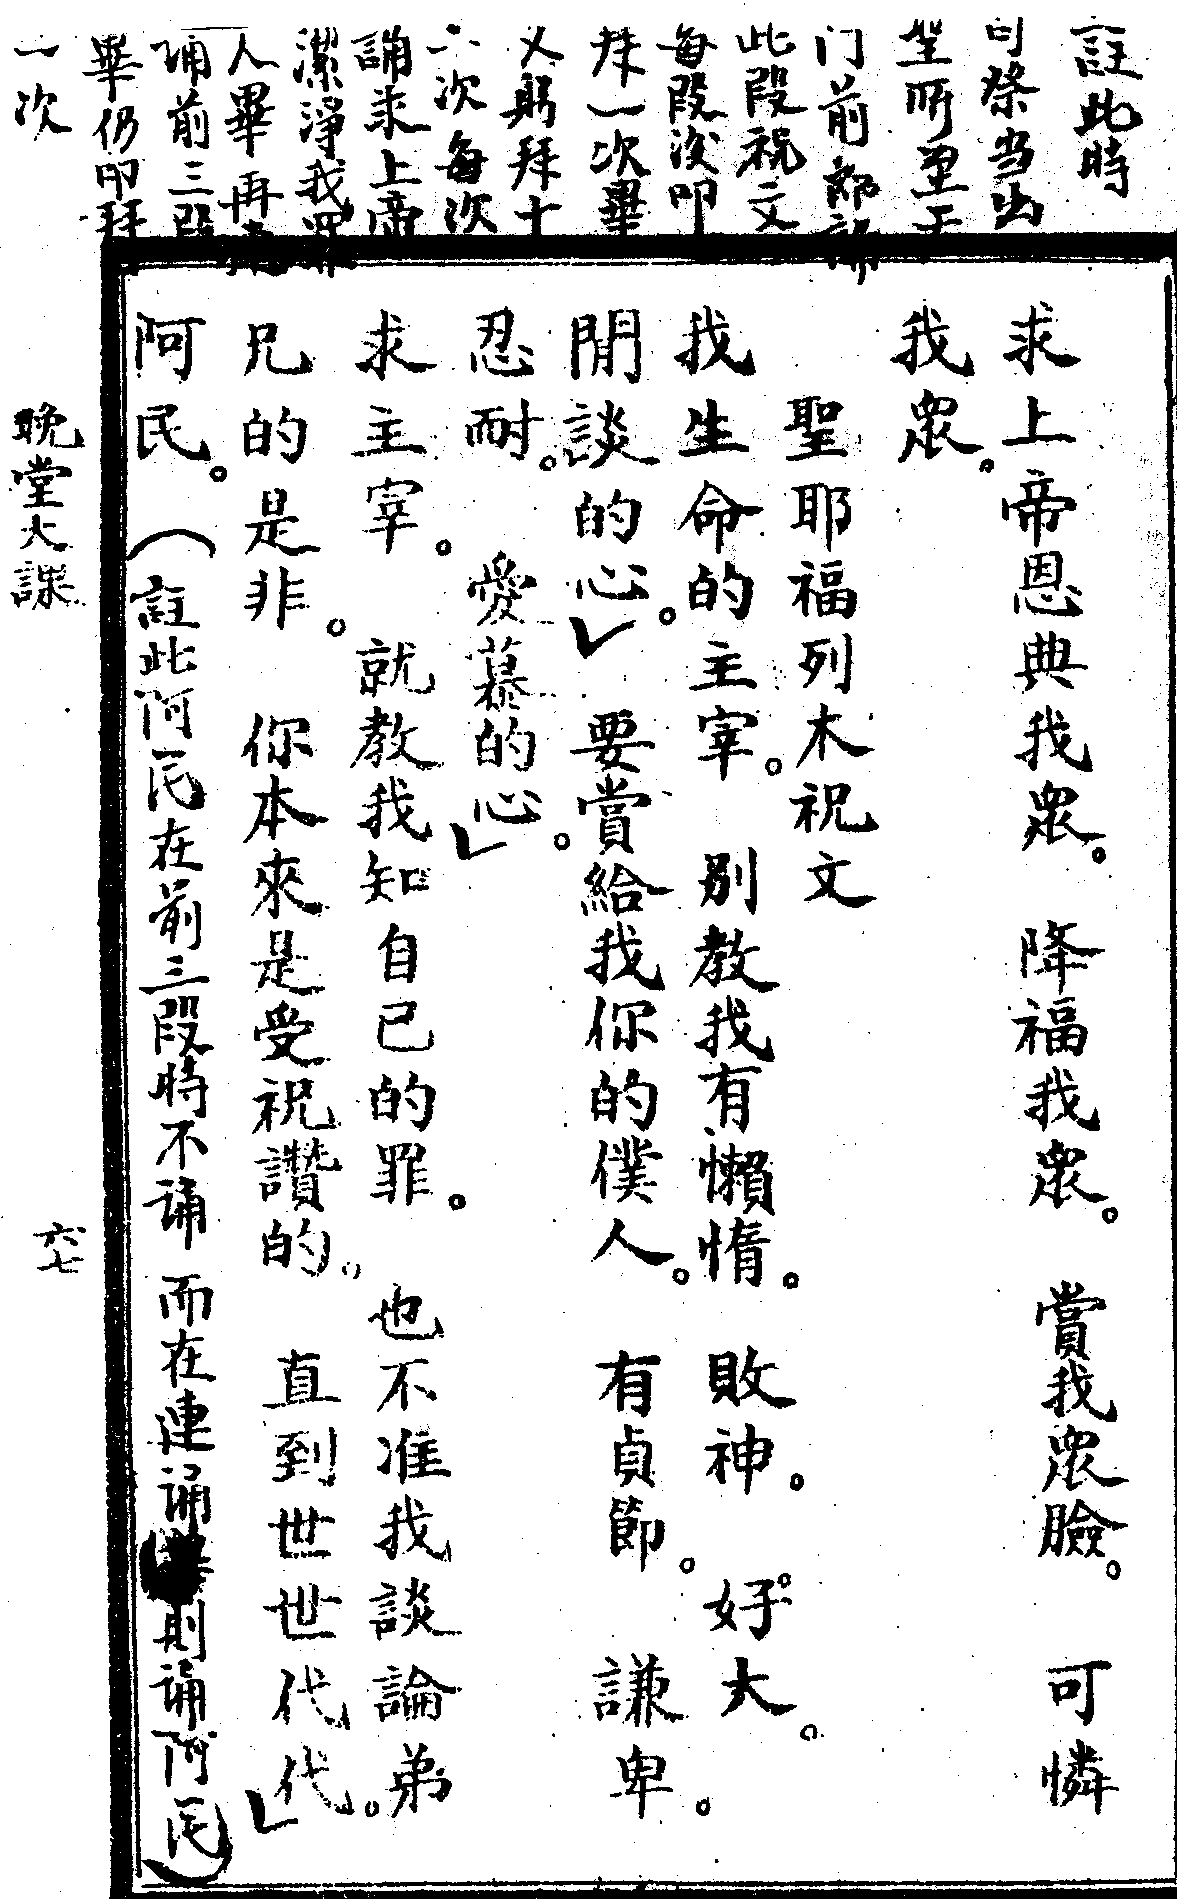 註此時
司祭当出
堂所立于
门前部誦
此段祝文
每段後叩
拜一次畢
又躬拜十
二次每次
誦求上帝
潔淨我罪
人畢再
誦前三段
畢仍叩拜
一次
求上帝恩典我衆。 降福我衆。 賞我衆臉。 可憐
我衆。
聖耶福列木祝文
我生命的主宰。 别教我有懶惰。 敗神。 好大。
閒談的心。 要賞給我你的僕人。 有貞節。 謙卑。
忍耐。 愛慕的心。
求主宰。 就教我知自己的罪。 也不准我談論弟
兄的是非。 你本來是受祝讚的。 直到世世代代。
阿民。(註此阿民在前三段時不诵 而在連诵 則诵阿民)
晚堂大課
六七